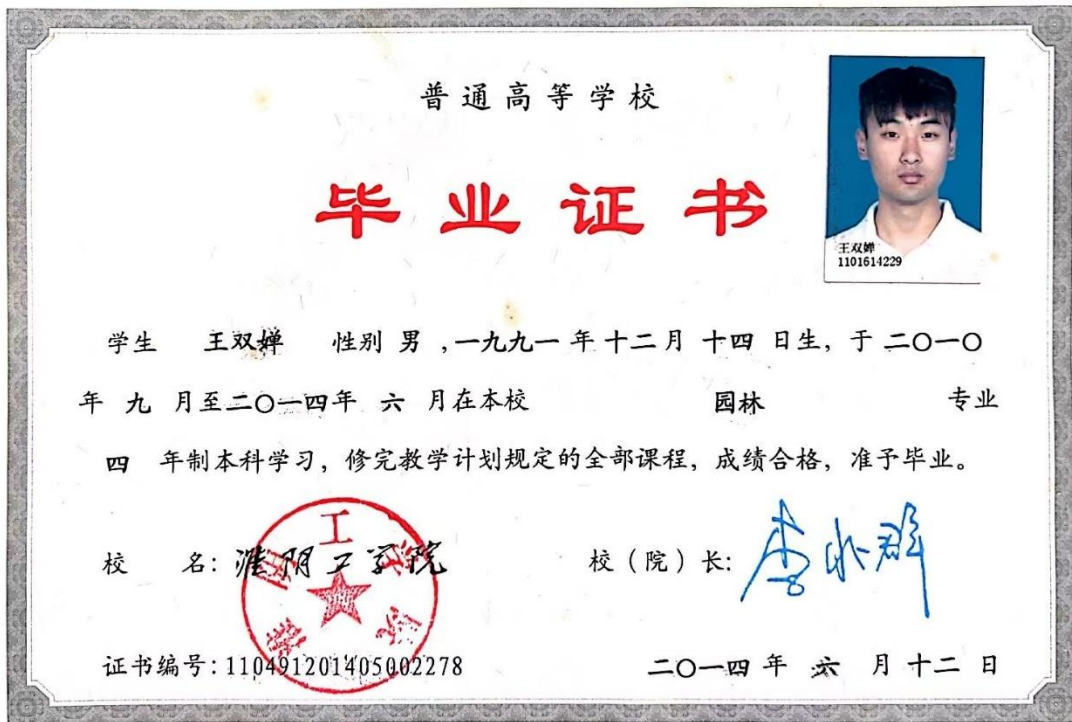 普通高等学校
毕业证书
王双婵
1101614229
学生 王双婵 性别 男 ,一九九一 年 十二月 十四 日生, 于 二〇一〇
年 九 月至二〇一四年 六 月在本校 园林 专业
四 年制本科学习, 修完教学计划规定的全部课程, 成绩合格, 准予毕业。
校 名: 淮阴工学院
校（院）长:
证书编号: 110491201405002278
二〇一四 年 六 月 十二 日